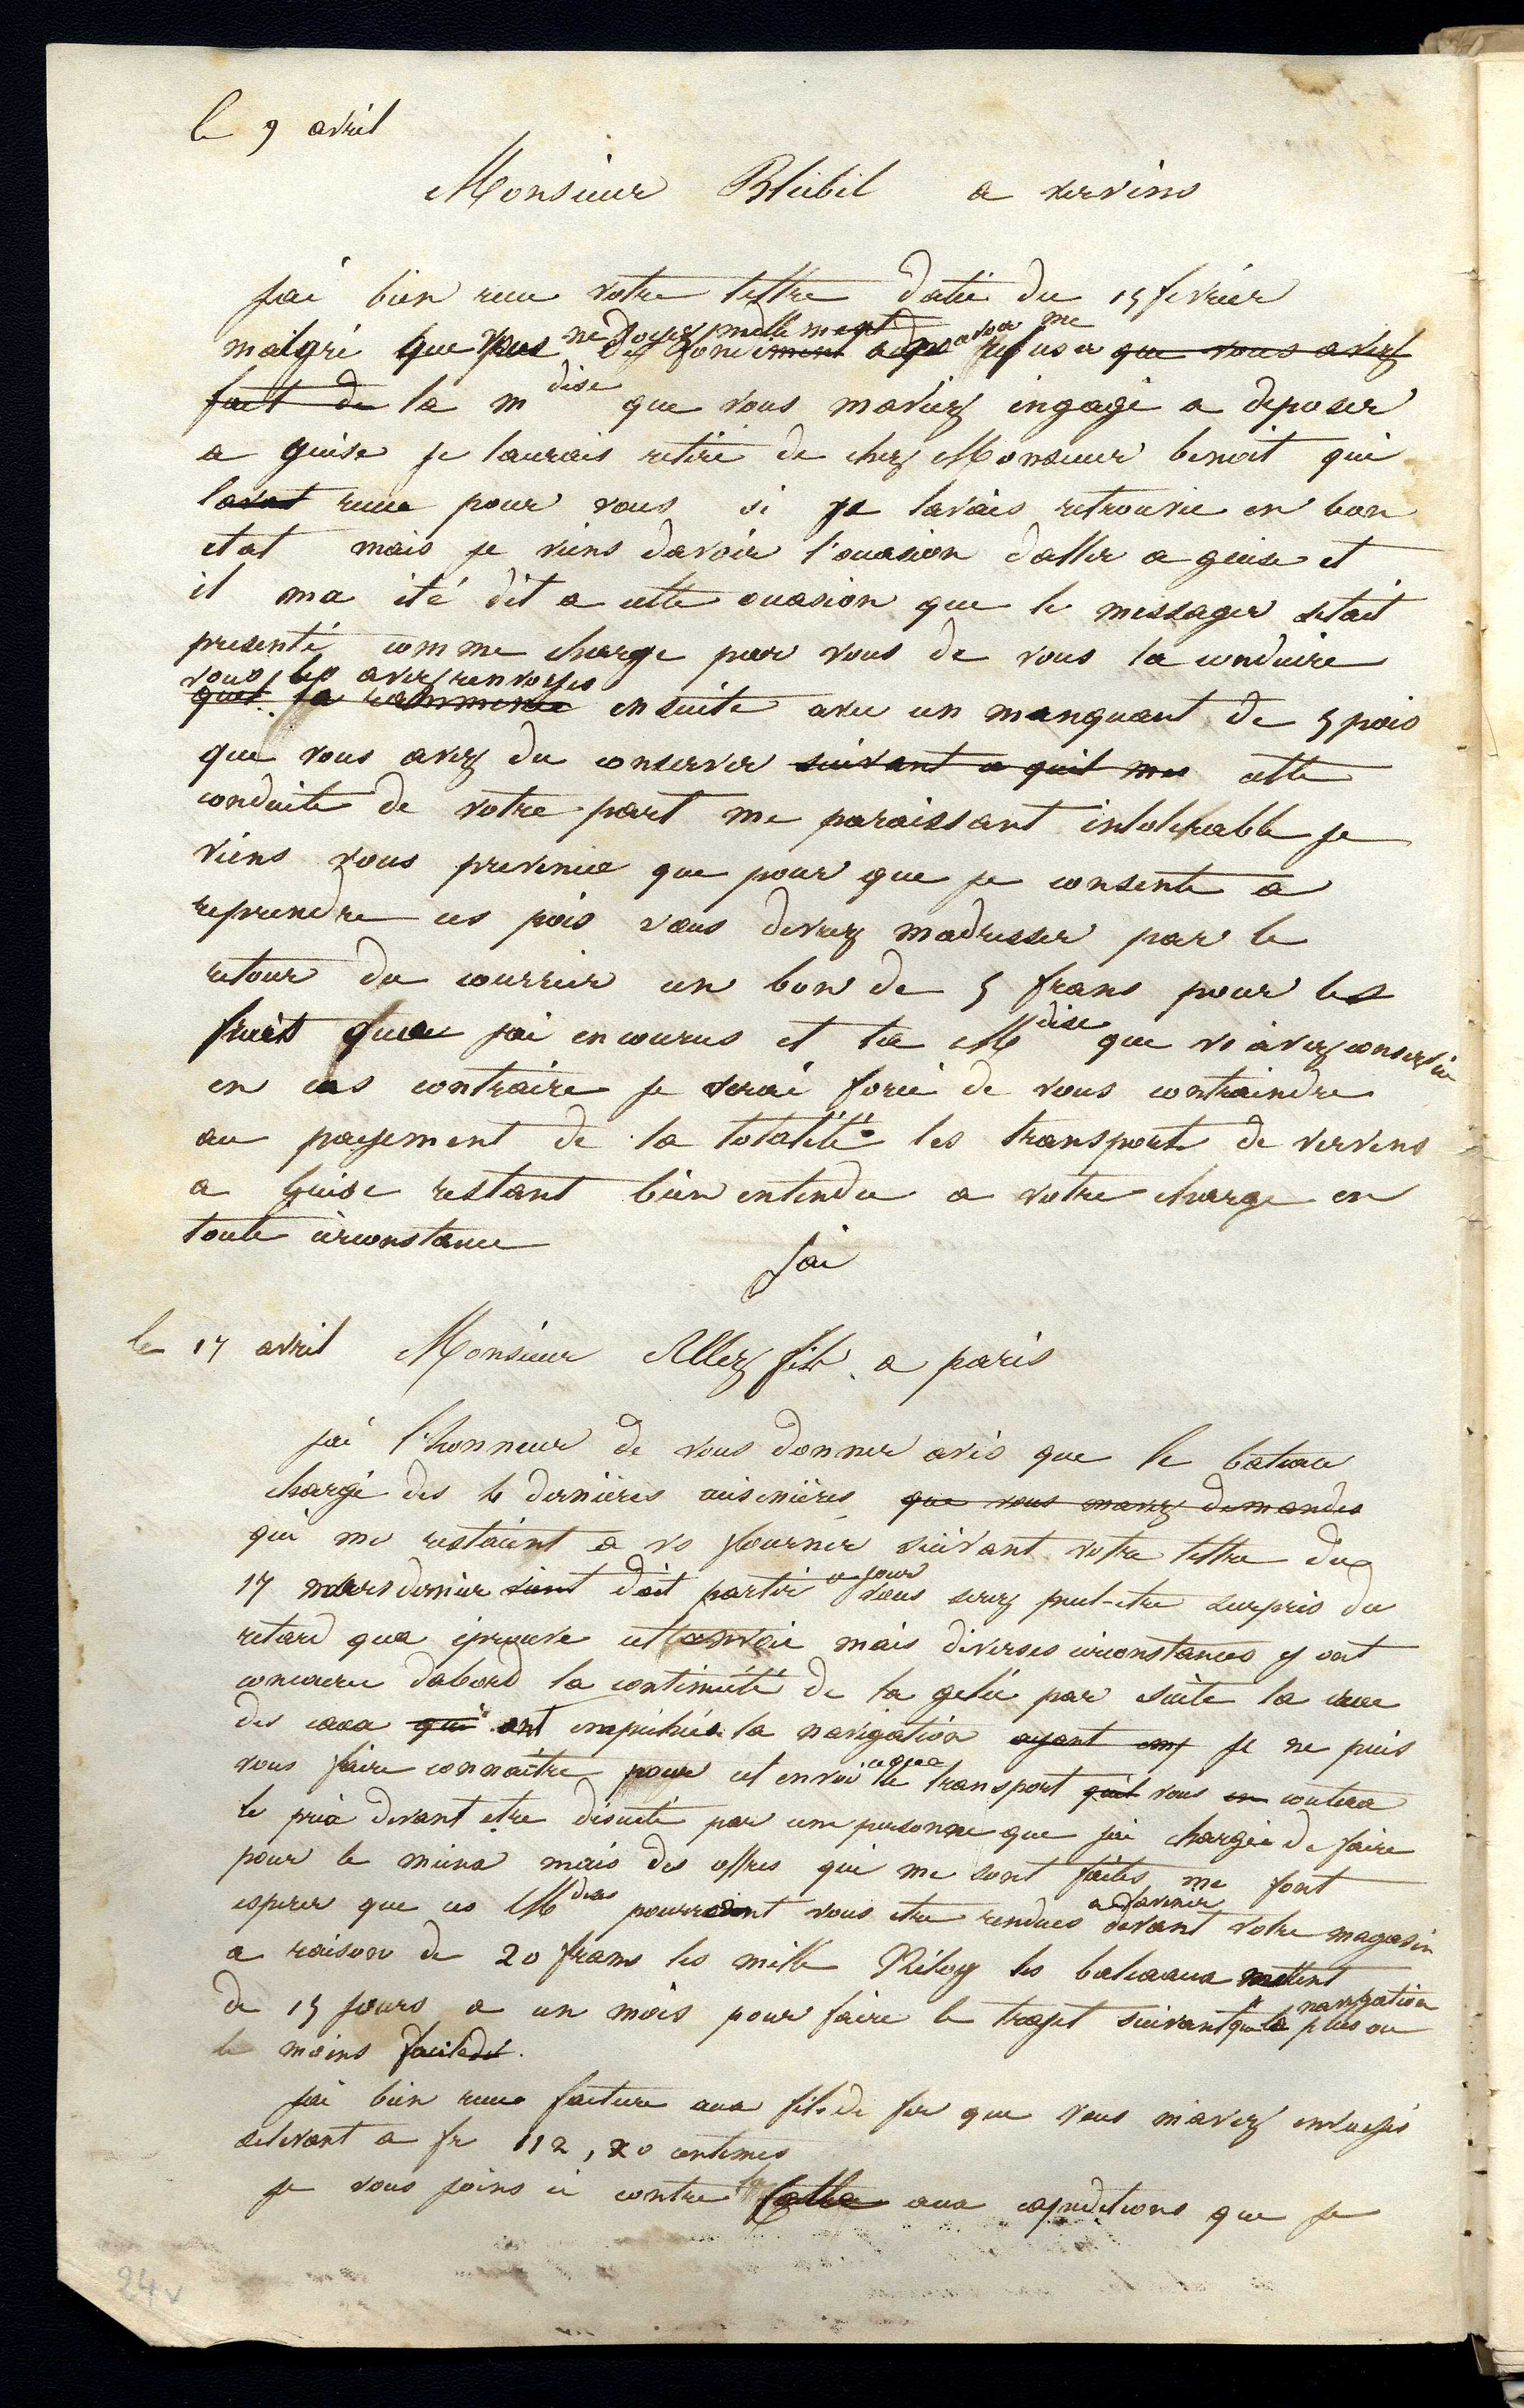 le 9 avril
Monsieur Bleibel a vervins
jai bien recu votre lettre datée du 15 fevrier
malgré que vous ne doivez nullement me refuser que vous avez
fait de la mdise que vous maviez engagé a deposer
a guise je laurais retiré de chez Monsieur benoit qui
lavait recue pour vous si je lavais retrouvée en bon
etat mais je viens davoir l'occasion daller a guise et
il ma été dit a cette occasion que le messager setait
presenté comme charge par vous de vous la conduire
vous les avez renvoyés
quil la rammenée ensuite avec un manquant de 5 pois
que vous avez du conserver suivant ce quil mes cette
conduite de votre part me paraissant intolerable je
viens vous prevenir que pour que je consente a
reprendre ces pois vous devrez madresser par le
retour du courrier un bon de 5 francs pour les
frais que jai encourus et la Mdise que vs avez conservée
en cas contraire je serai forcé de vous contraindre
au payement de la totalité les transport de vervins
a Guise restant bien entendu a votre charge en
toute circonstance
jai
le 17 avril Monsieur Allez fils a paris
jai l'honneur de vous donner avis que le bateau
chargé des 4 dernières cuisinières que vous mavez demandés
qui me restaient a vs fournir suivant votre lettre du
17 mars dernier vient doit partir ce jour vous serez peut-etre surpris du
retard qua éprouvé cet envoie mais diverses circonstances y ont
concouru dabord la continuité de la gelée par suite la crue
des eaux qui ont empéchés la navigation ayant emp je ne puis
vous faire connaitre pour cet envoi ce que le transport quil vous en coutera
le prix devant etre discuté par une personne que jai chargée de faire
pour le mieux mais des offres qui me sont faites me font
esperer que ces Mdises pourraient vous etre rendues devant votre magasin
a raison de 20 francs les mille Kilog les bateaux mettent
de 15 jours a un mois pour faire le trajet suivant que la navigation plus ou
le moins facile
jai bien recu facture aux fils de fer que vous m'avez envoyés
selevant a fr 112,20 centimes
je vous joins ci contre celle aux expeditions que je
24v